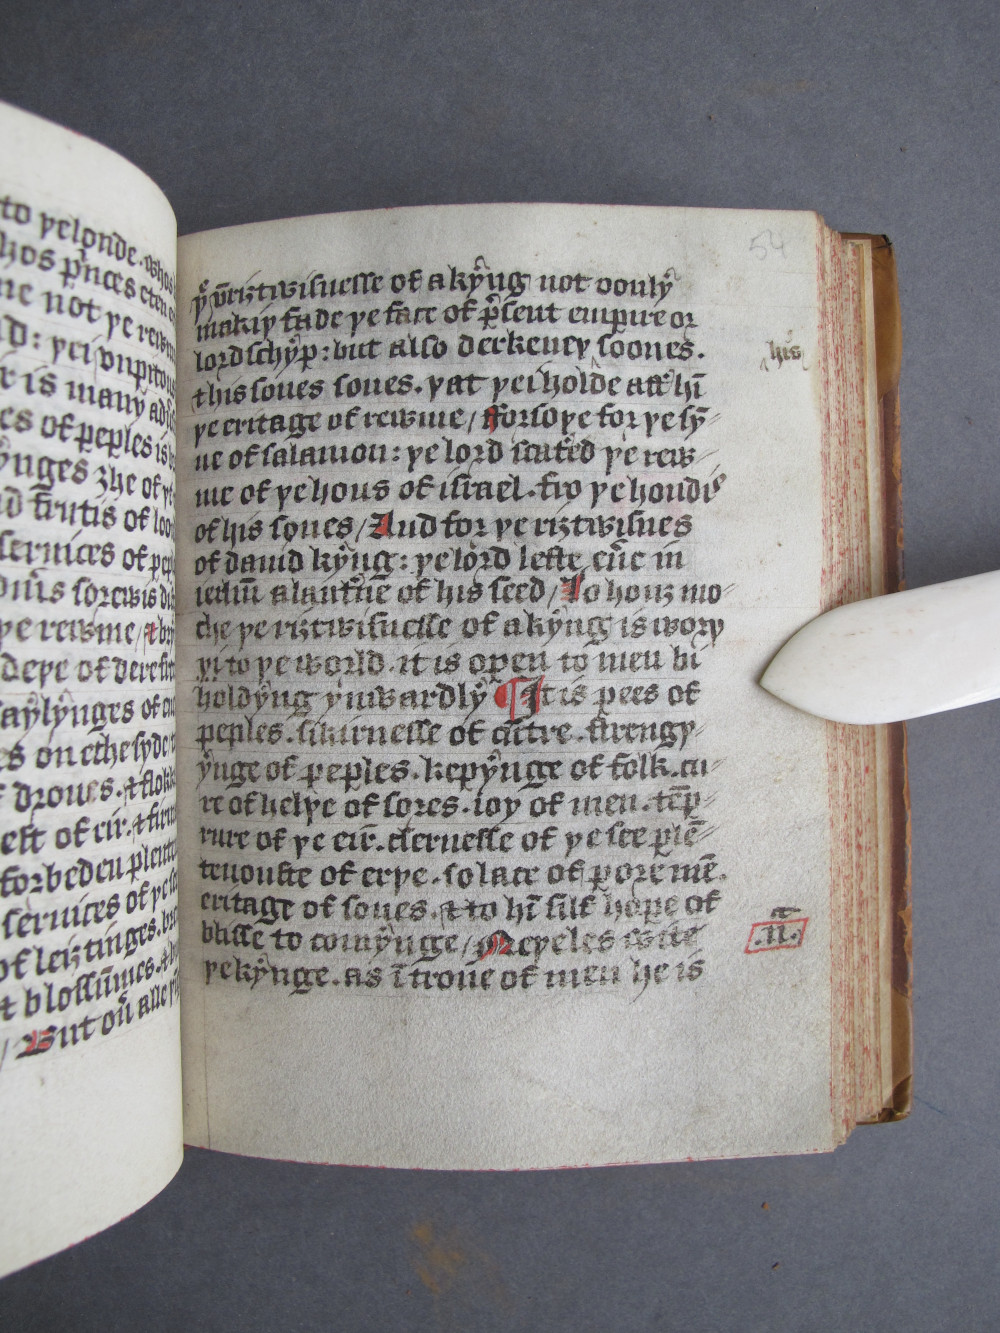 to yelonde. whos
hos pͥnces eten
me not ye rewm
nd: yei vnpitous
r is many
es of peples is
ynges ȝhe of yͭ
nd frutis of
seruices of pep
onus sorewis
ye rewme / &
deye of dere
saylynges of
es on ethe syde
f droues . & flok
est of eir . &
forbeden plente
seruices of ye
of leiȝtinges.
& blossūmes . &
/ But ou̅ alle
yͭ vnriȝtwisnesse of a kyng not oonly
makiy fade ye face of pͥsent empire or
lordschyp: but also derkeney soones.
this sones sones. yat yei holde aftͥ hī
ye eritage of rewme / fforsoye for ye sy-
ne of salamon: ye lord scatͥed ye rew-
me of ye hous of israel . fro ye hondis
of his sones / And for ye riȝtwisnes
of dauid kyng: ye lord lefte eu̅e in
ierlm̄ a lantͥne of his seed / Lo houȝ mo-
che ye riȝtwisnesse of a kyng is wory
yi to ye world . it is open to men bi
holdyng ynwardly ¶ It is pees of
peples . sikirnesse of cūtre . strengy-
ynge of peples . kepynge of folk . cu-
re of helye of sores . ioy of men . tēp-
rure of ye eir̄ . clernesse of ye see plē-
teuouste of erye . solace of pore mē .
eritage of sones . & to hī silf hope of
blisse to comynge / Neyeles wite
ye kynge . as ī trone of men he is
his
.n̄.
54